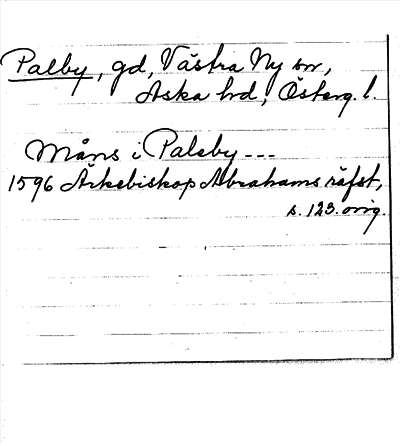 Palby, gd, Västra Ny sn,
Aska hd, Österg. l.
Måns i Palsby ---
1596 Ärkebiskop Abrahams räfst,
s. 123. orig.